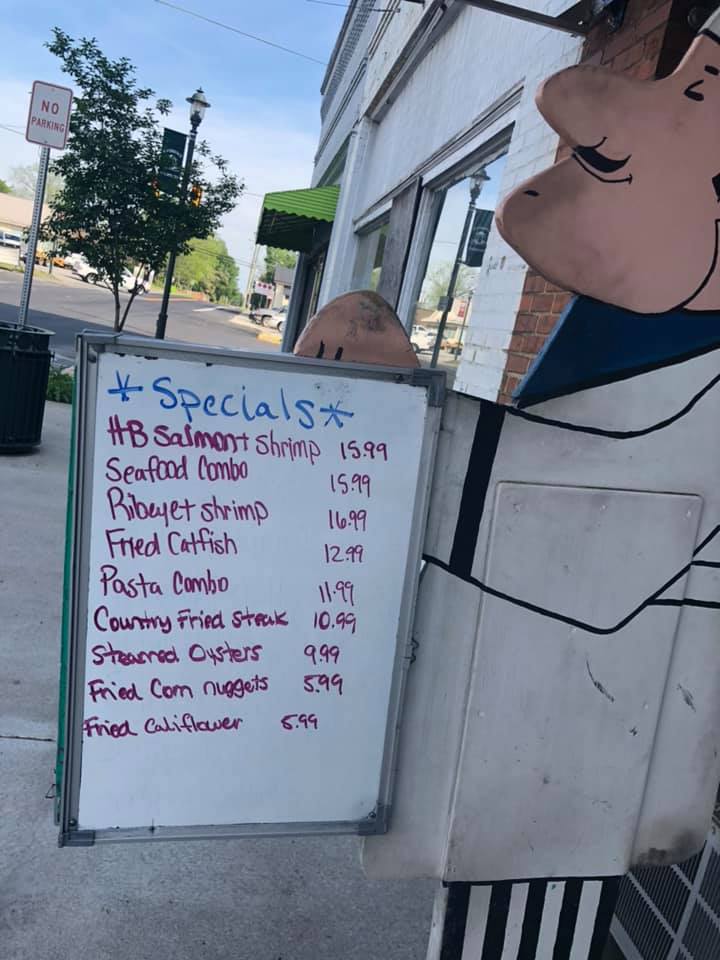 NO
PARKING
*Specials*
HB Salmon+ Shrimp 15.99
Seafood Combo 15.99
Ribeye+ shrimp 16.99
Fried Catfish 12.99
Pasta Combo 11.99
Country Fried Steak 10.99
Steamed Oysters 9.99
Fried Corn nuggets 5.99
Fried Califlower 5.99